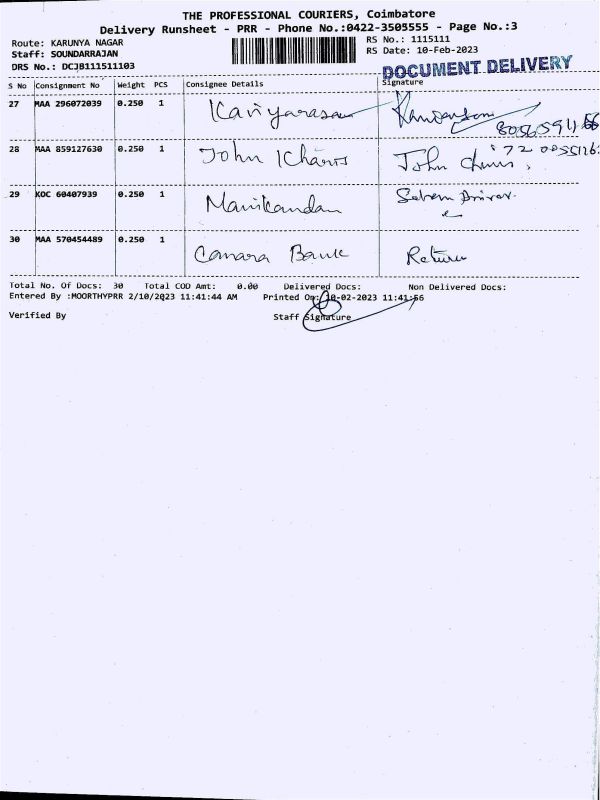 THE PROFESSIONAL COURIERS, Coimbatore
Delivery Runsheet - PRR - Phone No.:0422-3505555 - Page No.:3
Route: KARUNYA NAGAR
RS No.: 1115111
Staff: SOUNDARRAJAN
RS Date: 10-Feb-2023
DRS No.: DCJB111511103
DOCUMENT DELIVERY
S No Consignment No Weight PCS Consignee Details Signature
27 MAA 296072039 0.250 1 Kaviyarasan
28 MAA 859127630 0.250 1 John
29 KOC 60407939 0.250 1 Manikandan
30 MAA 570454489 0.250 1 Canara Bank Return
Total No. Of Docs: 30 Total COD Amt: 0.00 Delivered Docs: Non Delivered Docs:
Entered By :MOORTHYPRR 2/10/2023 11:41:44 AM Printed On: 10-02-2023 11:41:56
Verified By Staff Signature